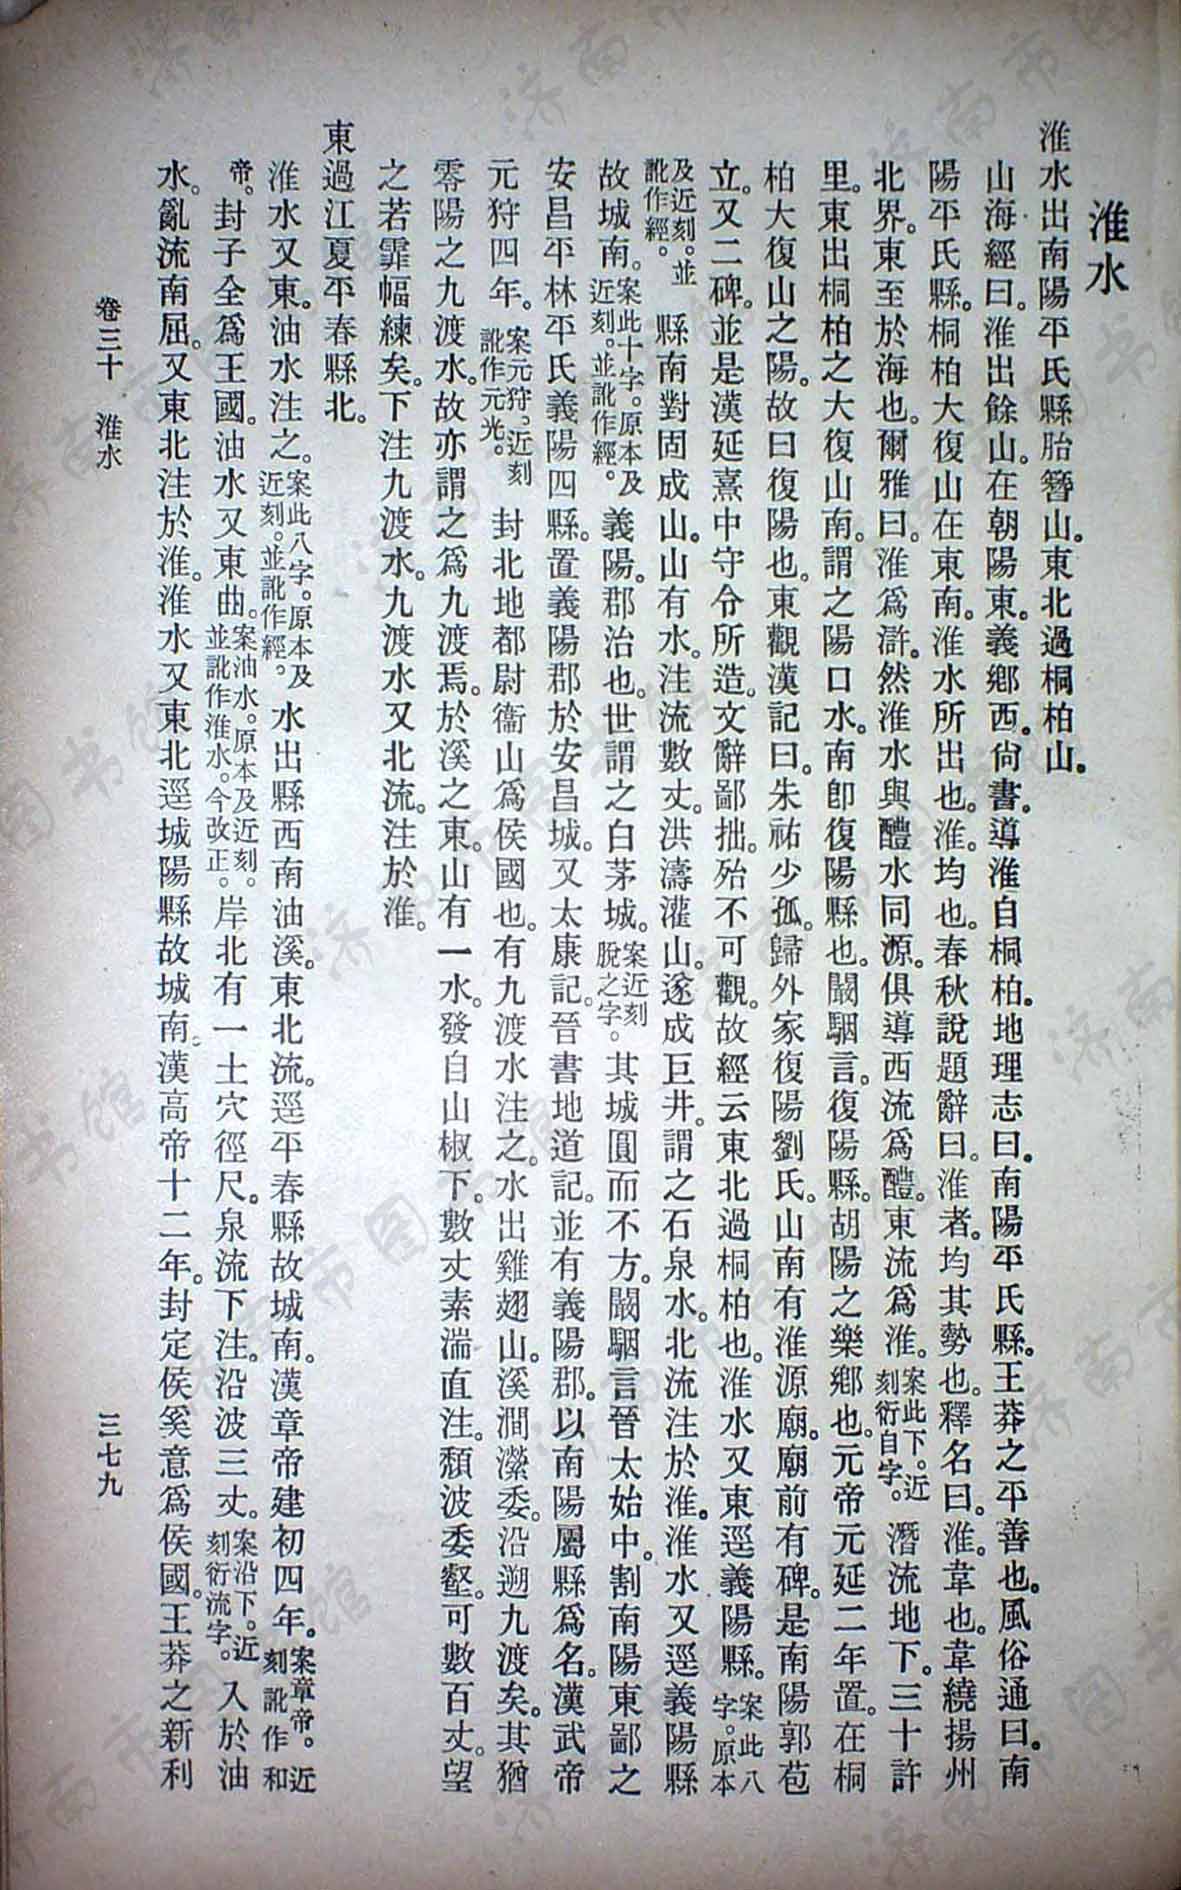 淮水
淮水出南陽平氏縣胎簪山。東北過桐柏山。
山海經曰。淮出餘山。在朝陽東。義鄉西。尙書。導淮自桐柏。地理志曰。南陽平氏縣。王莽之平善也。風俗通曰。南
陽平氏縣。桐柏大復山在東南。淮水所出也。淮。均也。春秋說題辭曰。淮者。均其勢也。釋名曰。淮。韋也。韋繞揚州
北界。東至於海也。爾雅曰。淮爲滸。然淮水與醴水同源。俱導西流爲醴。東流爲淮。案此下。近刻衍自字。潛流地下。三十許
里。東出桐柏之大復山南。謂之陽口水。南卽復陽縣也。闞駰言。復陽縣。胡陽之樂鄉也。元帝元延二年置。在桐
柏大復山之陽。故曰復陽也。東觀漢記曰。朱祐少孤。歸外家復陽劉氏。山南有淮源廟。廟前有碑。是南陽郭苞
立。又二碑。並是漢延熹中守令所造。文辭鄙拙。殆不可觀。故經云東北過桐柏也。淮水又東逕義陽縣。案此八字。原本
及近刻。並訛作經。縣南對固成山。山有水。注流數丈。洪濤灌山。遂成巨井。謂之石泉水。北流注於淮。淮水又逕義陽縣
故城南。案此十字。原本及近刻。並訛作經。義陽。郡治也。世謂之白茅城。案近刻脫之字。其城圓而不方。闞駰言晉太始中。割南陽東鄙之
安昌平林平氏義陽四縣。置義陽郡於安昌城。又太康記。晉書地道記。並有義陽郡。以南陽屬縣爲名。漢武帝
元狩四年。案元狩。近刻訛作元光。封北地都尉衞山爲侯國也。有九渡水注之。水出雞翅山。溪澗瀠委。沿遡九渡矣。其猶
零陽之九渡水。故亦謂之爲九渡焉。於溪之東。山有一水。發自山椒下。數丈素湍直注。頹波委壑。可數百丈。望
之若霏幅練矣。下注九渡水。九渡水又北流。注於淮。
東過江夏平春縣北。
淮水又東。油水注之。案此八字。原本及近刻。並訛作經。水出縣西南油溪。東北流。逕平春縣故城南。漢章帝建初四年。案章帝。近刻訛作和
帝。封子全爲王國。油水又東曲。案油水。原本及近刻。並訛作淮水。今改正。岸北有一土穴徑尺。泉流下注。沿波三丈。案沿下。近刻衍流字。入於油
水。亂流南屈。又東北注於淮。淮水又東北逕城陽縣故城南。漢高帝十二年。封定侯奚意爲侯國。王莽之新利
卷三十　淮水
三七九